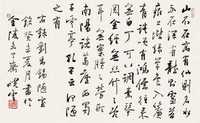 山不在高有仙則名
水不在深有龍則靈斯
是陋室惟吾德馨苔痕
上階綠草色入簾青談笑
有鴻儒往來無白丁可以
調素琴閱
金經無絲竹之亂耳
無案牘之勞形
南陽諸葛廬西蜀
子雲亭孔子云何陋
之有
右錄劉禹錫陋室
銘夏月書於
金陵齋